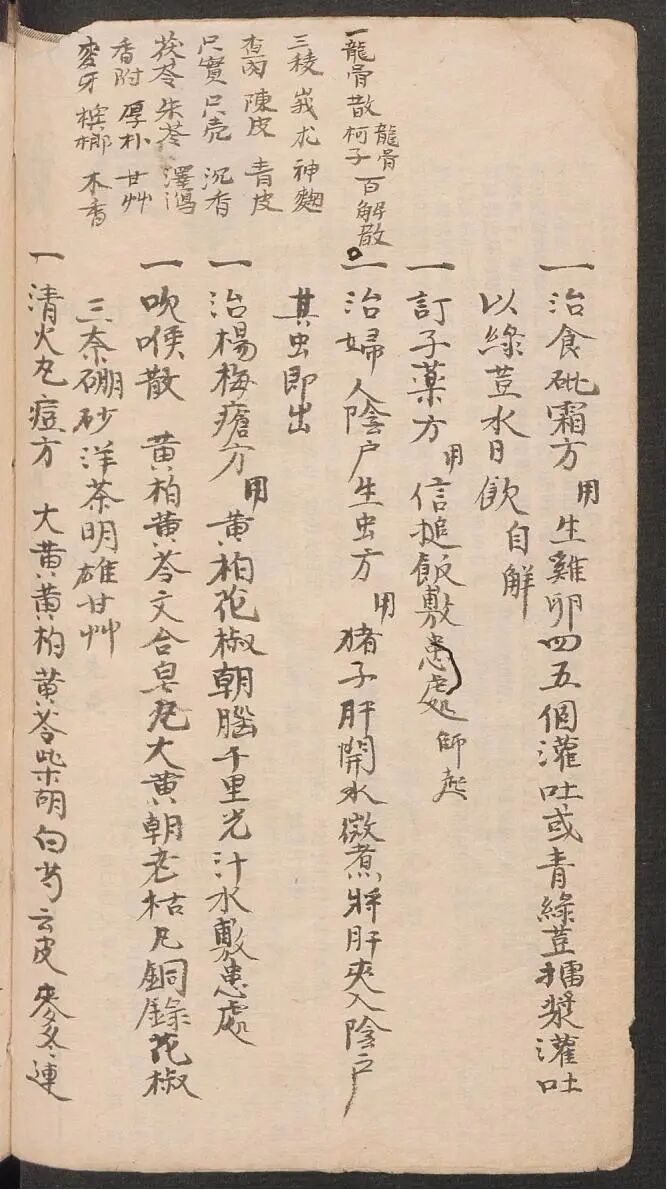 一龍骨散 龍骨
柯子 百解散
三稜 莪朮 神麯
查肉 陳皮 青皮
只實 只壳 沉香
茯苓 朱苓 澤瀉
香附 厚朴 甘艸
麥牙 檳榔 木香
一治食砒霜方 用生雞卵四五個灌吐或青綠荳擂漿灌吐
以綠荳水日飲自解
一訂子藥方 用信搥飯敷患處
一治婦人陰户生虫方 用猪子肝開水微煮將肝夾入陰户
其虫即出
一治楊梅瘡方 用黄柏花椒朝腦千里光汁水敷患處
一吹喉散 黄柏黄苓文合皂凡大黄朝老枯凡銅錄花椒
三奈硼砂洋茶明雄甘艸
一清火丸痘方 大黄黄柏黄苓柴胡白芍云皮麥冬連